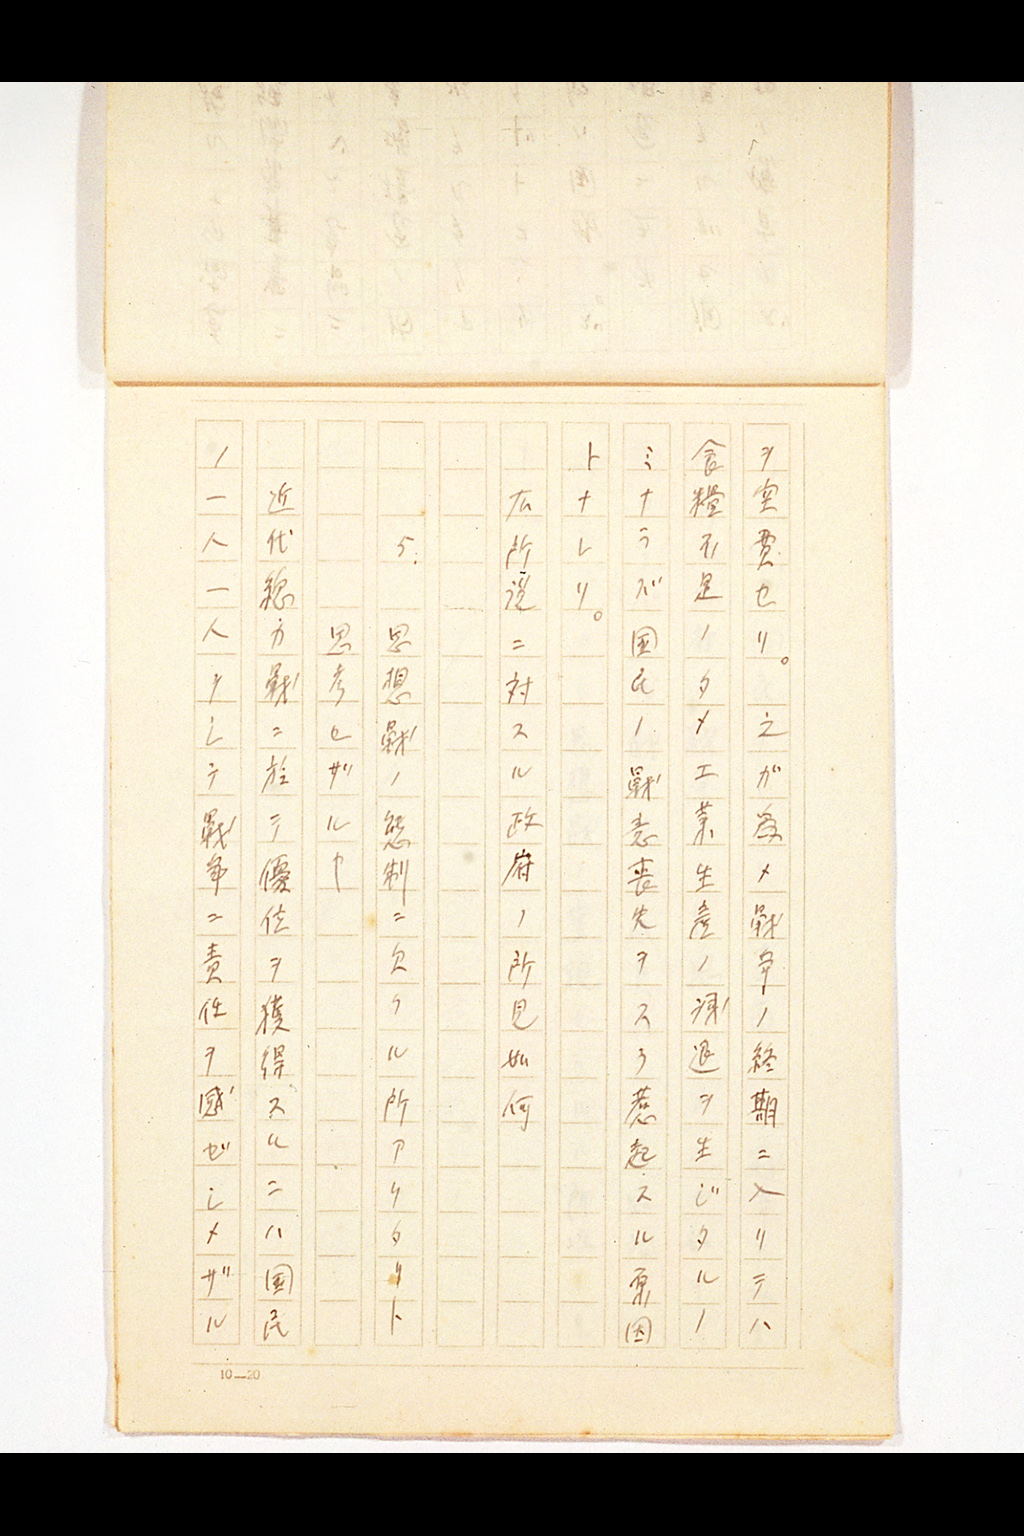 ヲ空費セリ。之ガ為メ戦争ノ終期ニ入リテハ
食糧不足ノタメ工業生産ノ減退ヲ生ジタルノ
ミナラズ国民ノ戦意喪失ヲスラ惹起スル原因
トナレリ。
右所説ニ対スル政府ノ所見如何
5. 思想戦ノ態制ニ欠クル所アリタリト
思考セザルヤ
近代総力戦ニ於テ優位ヲ獲得スルニハ国民
ノ一人一人ヲシテ戦争ニ責任ヲ感ゼシメザル
10—20